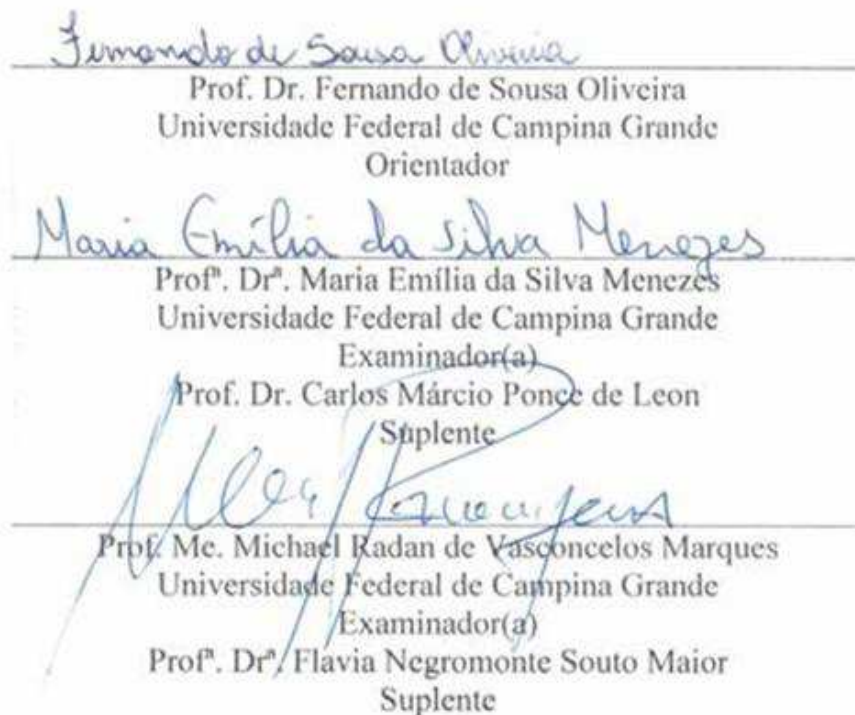 Fernando de Sousa Oliveira
Prof. Dr. Fernando de Sousa Oliveira
Universidade Federal de Campina Grande
Orientador
Maria Emília da Silva Menezes
Profª. Drª. Maria Emília da Silva Menezes
Universidade Federal de Campina Grande
Examinador(a)
Prof. Dr. Carlos Márcio Ponce de Leon
Suplente
Prof. Me. Michael Radan de Vasconcelos Marques
Universidade Federal de Campina Grande
Examinador(a)
Profª. Drª. Flavia Negromonte Souto Maior
Suplente